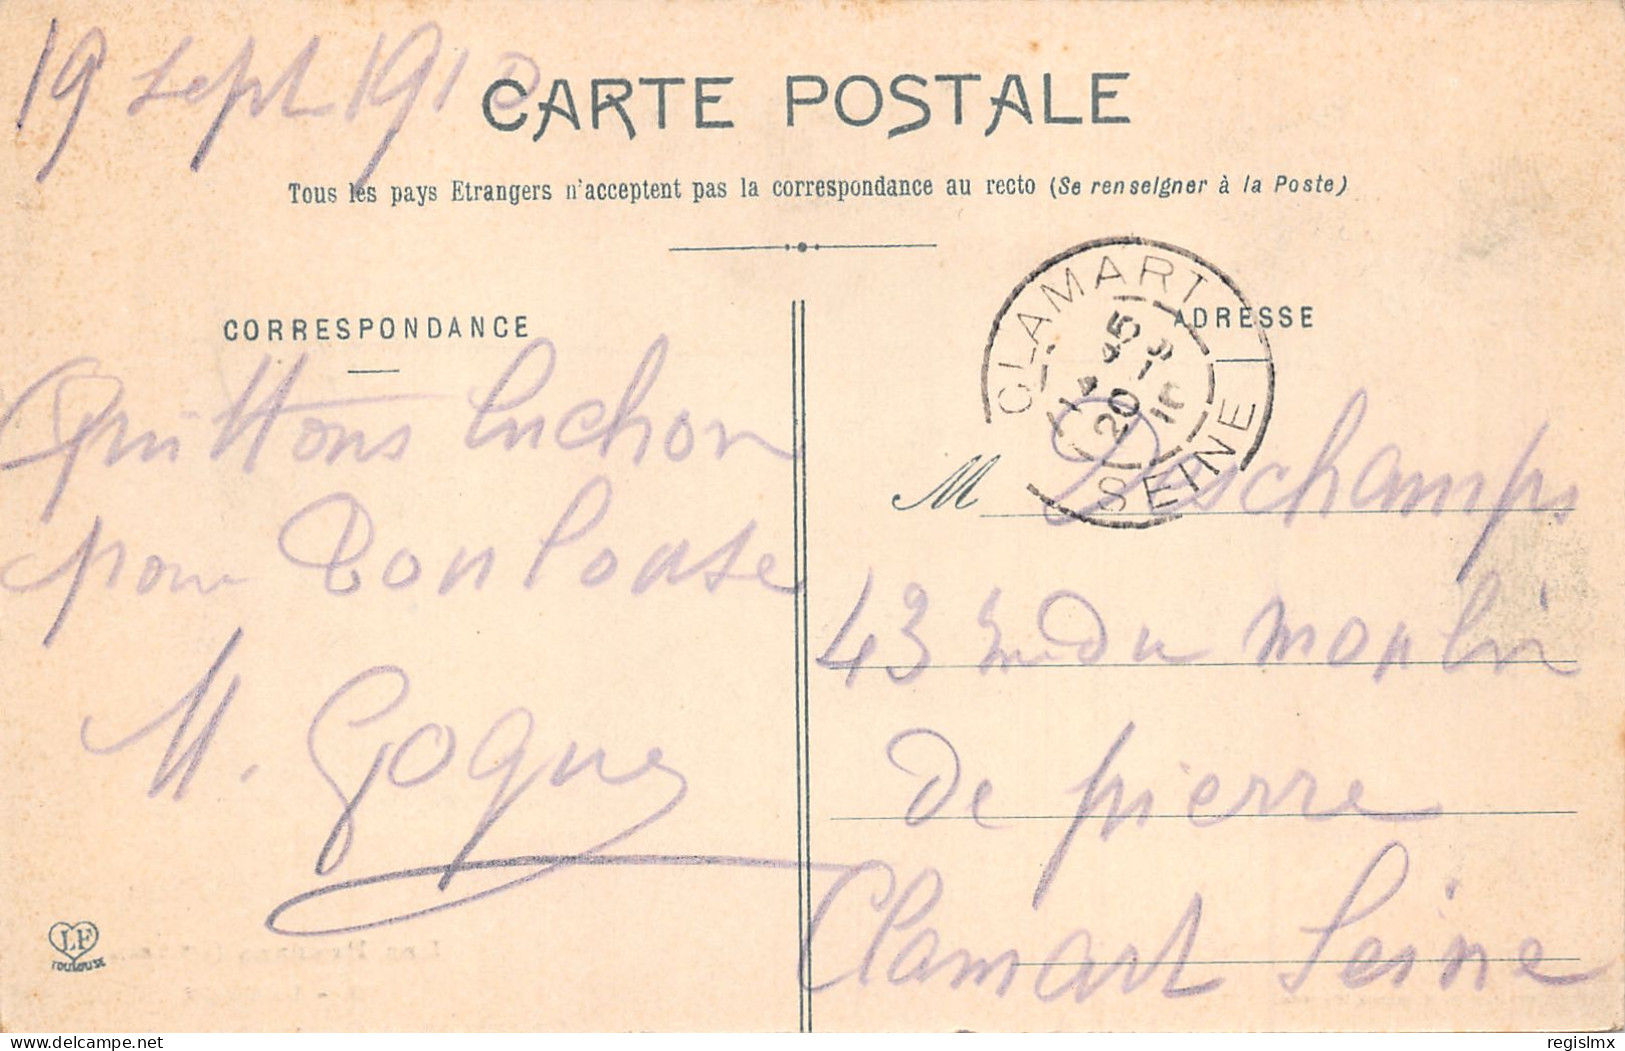 19 Sept 1910
CARTE POSTALE
Tous les pays Etrangers n'acceptent pas la correspondance au recto (Se renseigner à la Poste)
CORRESPONDANCE
Quittons Luchon
pour Toulouse
M. Gogue
LF
TOULOUSE
ADRESSE
CLAMART
14 45
20 -9
10
SEINE
M Deschamps
43 rue du moulin
de pierre
Clamart Seine
delcampe.net
regislmx